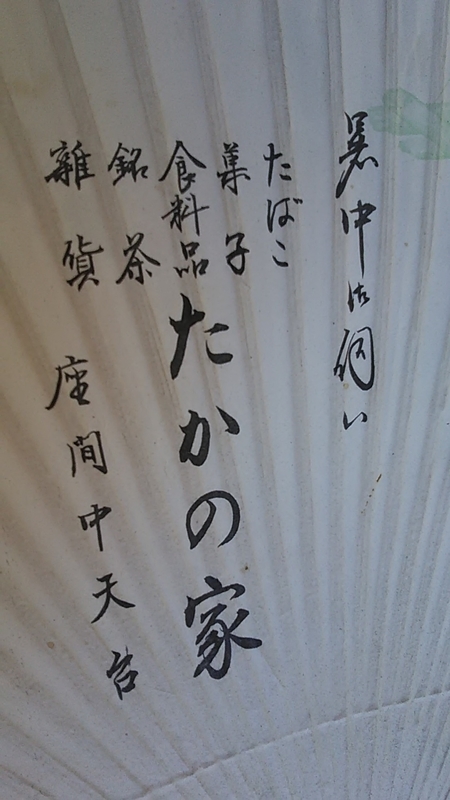 暑中御伺い
たばこ
菓子
食料品
銘茶
雑貨
たかの家
座間中天台